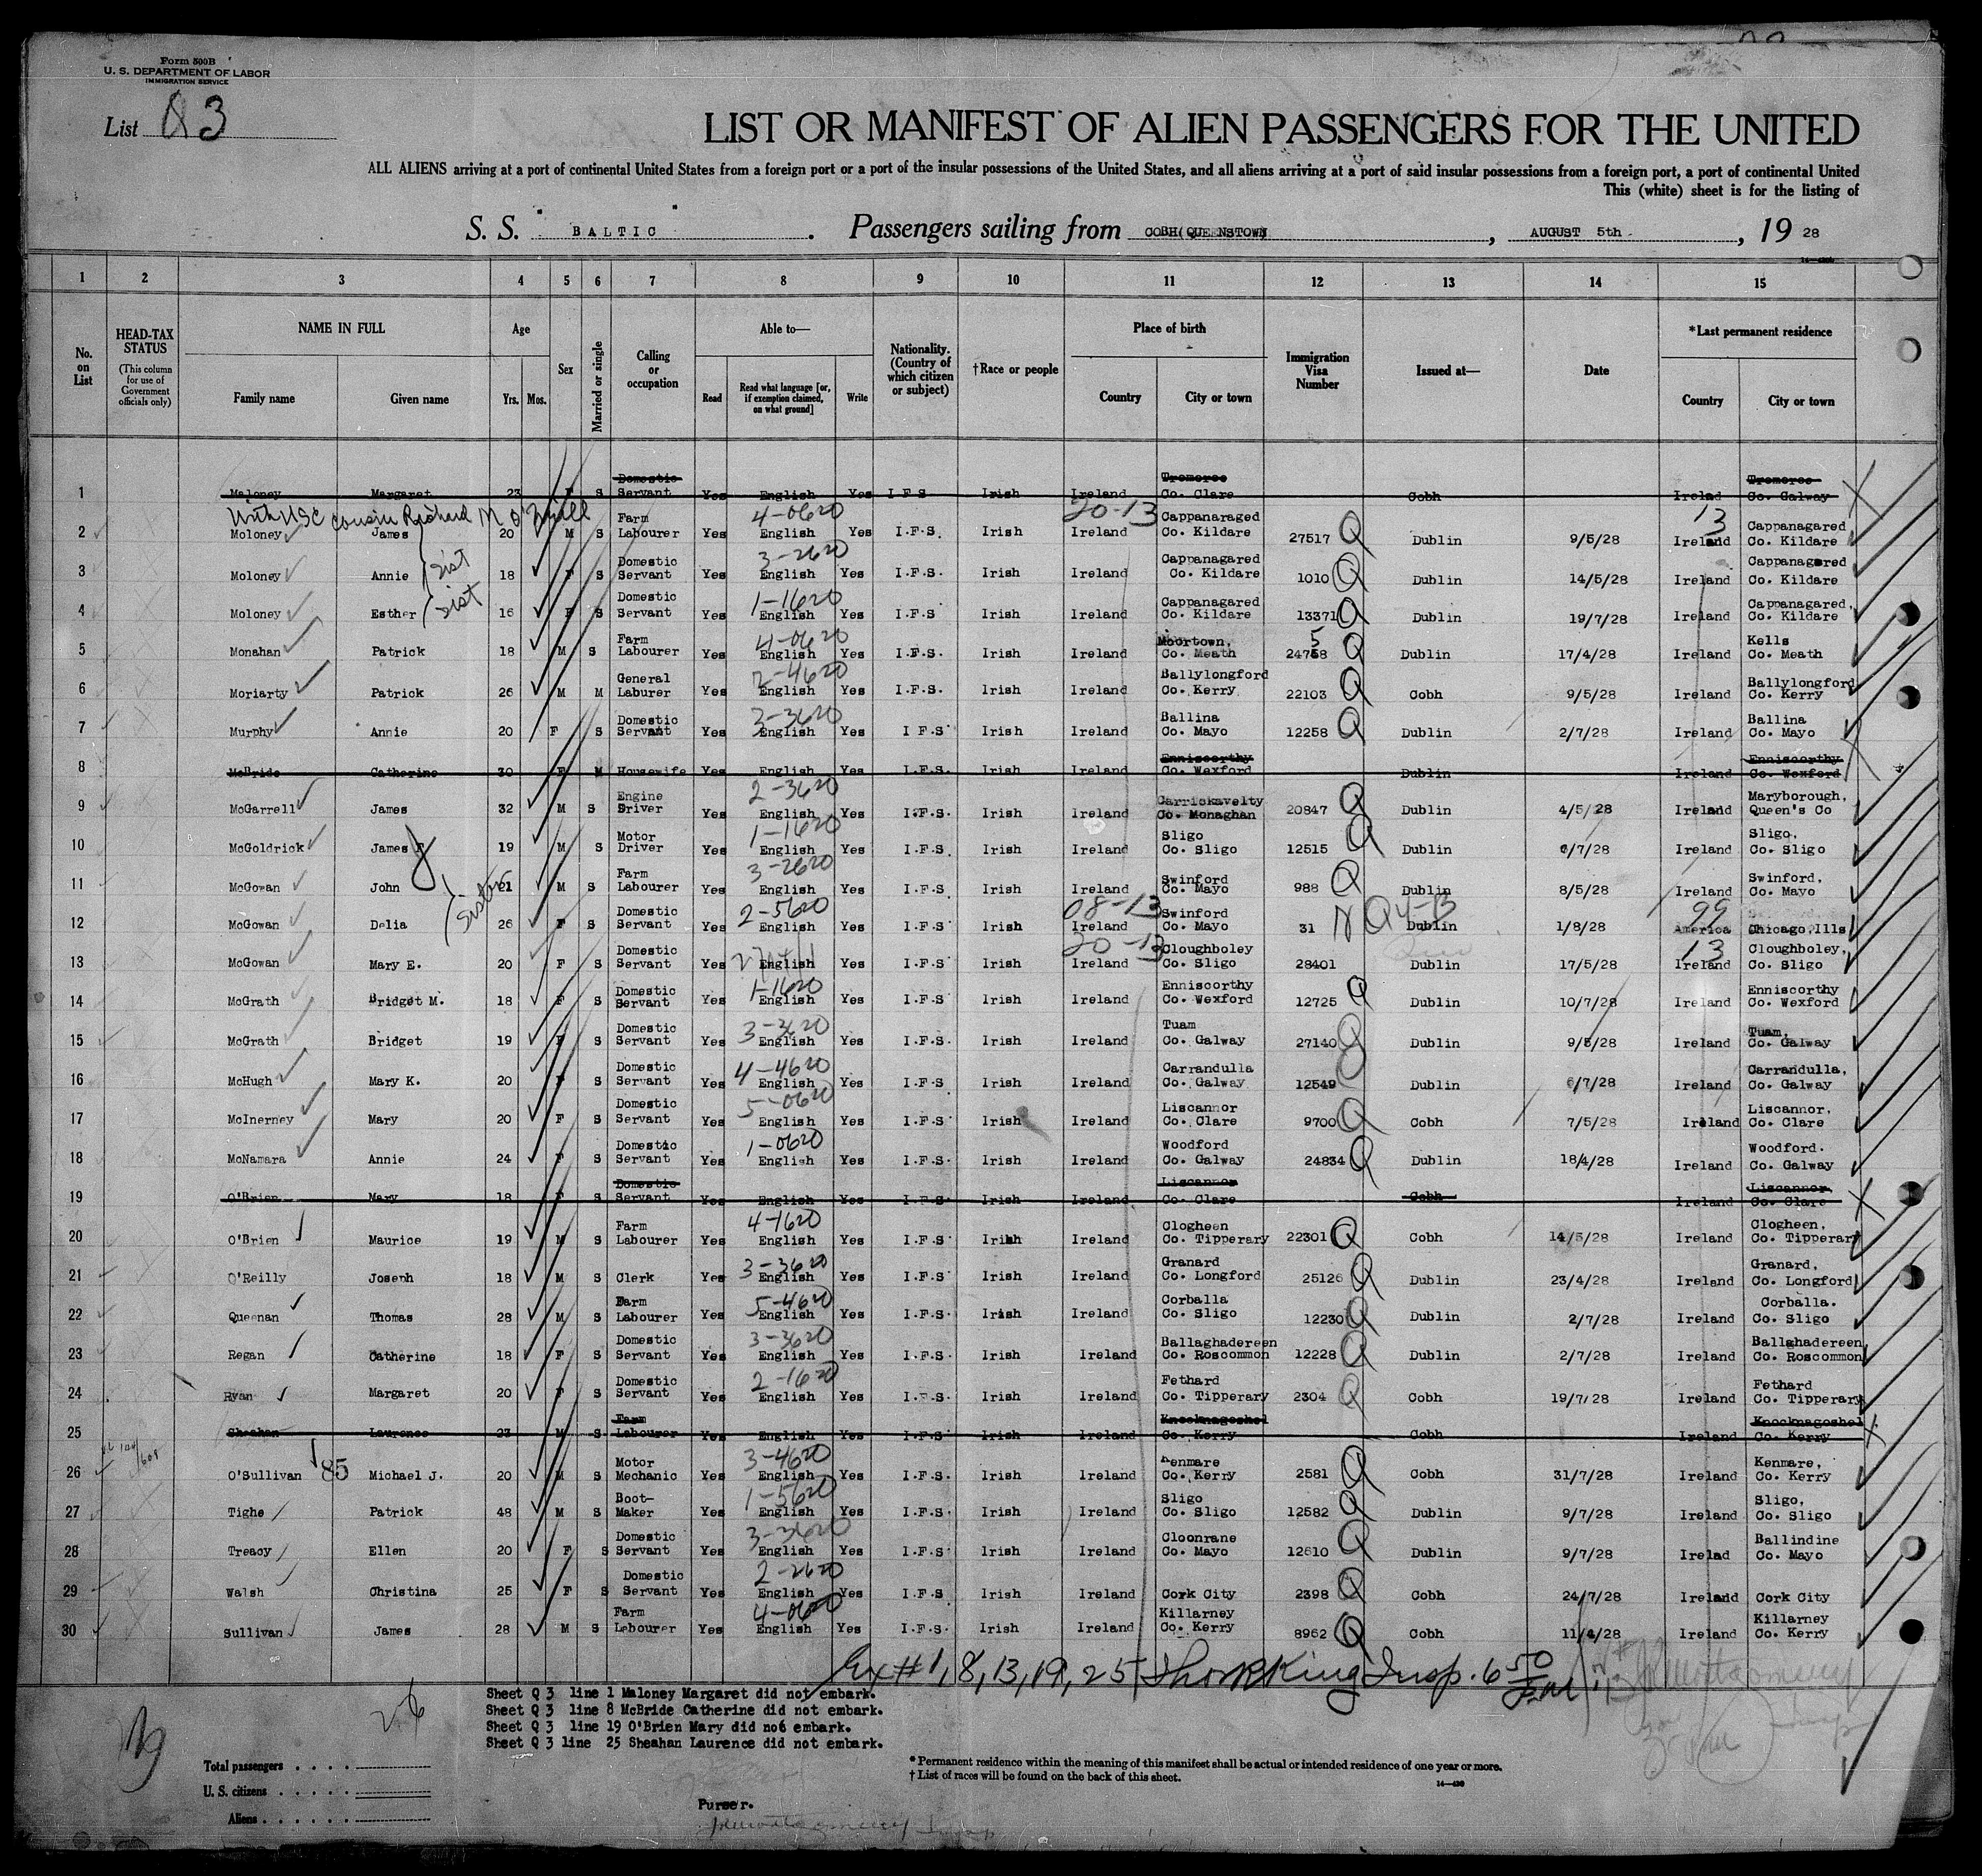 Form 500B
U. S. DEPARTMENT OF LABOR
IMMIGRATION SERVICE
List Q3
LIST OR MANIFEST OF ALIEN PASSENGERS FOR THE UNITED
ALL ALIENS arriving at a port of continental United States from a foreign port or a port of the insular possessions of the United States, and all aliens arriving at a port of said insular possessions from a foreign port, a port of continental United
This (white) sheet is for the listing of
S. S. BALTIC. Passengers sailing from COBH(QUEENSTOWN), AUGUST 5th, 19 28
1 2 3 4 5 6 7 8 9 10 11 12 13 14 15
No. on List
HEAD-TAX STATUS (This column for use of Government officials only)
NAME IN FULL Family name Given name
Age Yrs. Mos.
Sex
Married or single
Calling or occupation
Able to— Read Read what language [or, if exemption claimed, on what ground] Write
Nationality. (Country of which citizen or subject)
†Race or people
Place of birth Country City or town
Immigration Visa Number
Issued at—
Date
*Last permanent residence Country City or town
1 Maloney Margaret 23 F S Domestic Servant Yes English Yes I F S Irish Ireland Co. Clare Cobh Irelnd Co. Galway
With USC cousin Richard M O'Neill
2 Moloney James 20 M S Farm Labourer Yes 4-0620 English Yes I.F.S. Irish 20-13 Ireland Cappanaraged Co. Kildare 27517 Q Dublin 9/5/28 13 Ireland Cappanagared Co. Kildare
3 Moloney Annie sist 18 F S Domestic Servant Yes 3-2620 English Yes I.F.S. Irish Ireland Cappanagared Co. Kildare 1010 Q Dublin 14/5/28 Ireland Cappanagered Co. Kildare
4 Moloney Esther sist 16 F S Domestic Servant Yes 1-1620 English Yes I.F.S Irish Ireland Cappanagared Co. Kildare 13371 Q Dublin 19/7/28 Ireland Cappanagared, Co. Kildare
5 Monahan Patrick 18 M S Farm Labourer Yes 4-0620 English Yes I.F.S. Irish Ireland Moortown, Co. Meath 24758 5 Q Dublin 17/4/28 Ireland Kells Co. Meath
6 Moriarty Patrick 26 M M General Laburer Yes 2-4620 English Yes I.F.S. Irish Ireland Ballylongford Co. Kerry 22103 Q Cobh 9/5/28 Ireland Ballylongford Co. Kerry
7 Murphy Annie 20 F S Domestic Servant Yes 3-3620 English Yes I F.S Irish Ireland Ballina Co. Mayo 12258 Q Dublin 2/7/28 Ireland Ballina Co. Mayo
8 McBride Catherine 30 F M Housewife Yes English Yes I.F.S. Irish Ireland Enniscorthy Co. Wexford Dublin Ireland Enniscorthy Co. Wexford
9 McGarrell James 32 M S Engine Driver Yes 2-3620 English Yes I.F.S. Irish Ireland Carrickavelty Co. Monaghan 20847 Q Dublin 4/5/28 Ireland Maryborough, Queen's Co
10 McGoldrick James F 19 M S Motor Driver Yes 1-1620 English Yes I.F.S Irish Ireland Sligo Co. Sligo 12515 Q Dublin 6/7/28 Ireland Sligo, Co. Sligo
11 McGowan John 21 M S Farm Labourer Yes 3-2620 English Yes I.F.S Irish Ireland Swinford Co. Mayo 988 Q Dublin 8/5/28 Ireland Swinford, Co. Mayo
12 McGowan Delia sister 26 F S Domestic Servant Yes 2-5620 English Yes I.F.S Irish 08-13 Ireland Swinford Co. Mayo 31 N Q 4-13 Dublin 1/8/28 99 America Chicago,Ills
13 McGowan Mary E. 20 F S Domestic Servant Yes English Yes I.F.S Irish 20-13 Ireland Cloughboley Co. Sligo 28401 Dublin 17/5/28 13 Ireland Cloughboley, Co. Sligo
14 McGrath Bridget M. 18 F S Domestic Servant Yes 1-1620 English Yes I.F.S Irish Ireland Enniscorthy Co. Wexford 12725 Q Dublin 10/7/28 Ireland Enniscorthy Co. Wexford
15 McGrath Bridget 19 F S Domestic Servant Yes 3-3620 English Yes I.F.S Irish Ireland Tuam Co. Galway 27140 Q Dublin 9/5/28 Ireland Tuam, Co. Galway
16 McHugh Mary K. 20 F S Domestic Servant Yes 4-4620 English Yes I.F.S Irish Ireland Carrandulla Co. Galway 12549 Q Dublin 6/7/28 Ireland Carrandulla, Co. Galway
17 McInerney Mary 20 F S Domestic Servant Yes 5-0620 English Yes I.F.S Irish Ireland Liscannor Co. Clare 9700 Q Cobh 7/5/28 Ireland Liscannor, Co. Clare
18 McNamara Annie 24 F S Domestic Servant Yes 1-0620 English Yes I.F.S. Irish Ireland Woodford Co. Galway 24834 Q Dublin 18/4/28 Ireland Woodford. Co. Galway
19 O'Brien Mary 18 F S Domestic Servant Yes English Yes I.F.S. Irish Ireland Liscannor Co. Clare Cobh Ireland Liscannor, Co. Clare
20 O'Brien Maurice 19 M S Farm Labourer Yes 4-1620 English Yes I.F.S. Irish Ireland Clogheen Co. Tipperary 22301 Q Cobh 14/5/28 Ireland Clogheen, Co. Tipperary
21 O'Reilly Joseph 18 M S Clerk Yes 3-3620 English Yes I.F.S. Irish Ireland Granard Co. Longford 25126 Q Dublin 23/4/28 Ireland Granard, Co. Longford
22 Queenan Thomas 28 M S Farm Labourer Yes 5-4620 English Yes I.F.S. Irish Ireland Corballa Co. Sligo 12230 Q Dublin 2/7/28 Ireland Corballa. Co. Sligo
23 Regan Catherine 18 F S Domestic Servant Yes 3-3620 English Yes I.F.S. Irish Ireland Ballaghadereen Co. Roscommon 12228 Q Dublin 2/7/28 Ireland Ballghadereen Co. Roscommon
24 Ryan Margaret 20 F S Domestic Servant Yes 2-1620 English Yes I.F.S. Irish Ireland Fethard Co. Tipperary 2304 Q Cobh 19/7/28 Ireland Fethard Co. Tipperary
25 Sheahan Laurence 23 M S Farm Labourer Yes English Yes I.F.S. Irish Ireland Knocknagoshel Co. Kerry Cobh Ireland Knocknagoshel Co. Kerry
26 O'Sullivan 85 Michael J. 20 M S Motor Mechanic Yes 3-4620 English Yes I.F.S Irish Ireland Kenmare Co. Kerry 2581 Q Cobh 31/7/28 Ireland Kenmare, Co. Kerry
27 Tighe Patrick 48 M S Boot-Maker Yes 1-5620 English Yes I.F.S Irish Ireland Sligo Co. Sligo 12582 Q Dublin 9/7/28 Ireland Sligo, Co. Sligo
28 Treacy Ellen 20 F S Domestic Servant Yes 3-3620 English Yes I.F.S Irish Ireland Cloonrane Co. Mayo 12610 Q Dublin 9/7/28 Irelad Ballindine Co. Mayo
29 Walsh Christina 25 F S Domestic Servant Yes 2-2620 English Yes I.F.S Irish Ireland Cork City 2398 Q Cobh 24/7/28 Ireland Cork City
30 Sullivan James 28 M S Farm Labourer Yes 4-0620 English Yes I.F.S. Irish Ireland Killarney Co. Kerry 8962 Q Cobh 11/4/28 Ireland Killarney Co. Kerry
Ex # 1, 8, 13, 19, 25 King Insp. 6 50
Sheet Q 3 line 1 Maloney Margaret did not embark.
Sheet Q 3 line 8 McBride Catherine did not embark.
Sheet Q 3 line 19 O'Brien Mary did no6 embark.
Sheet Q 3 line 25 Sheahan Laurence did not embark.
26
Total passengers
U. S. citizens
Aliens
* Permanent residence within the meaning of this manifest shall be actual or intended residence of one year or more.
† List of races will be found on the back of this sheet.
Purser.